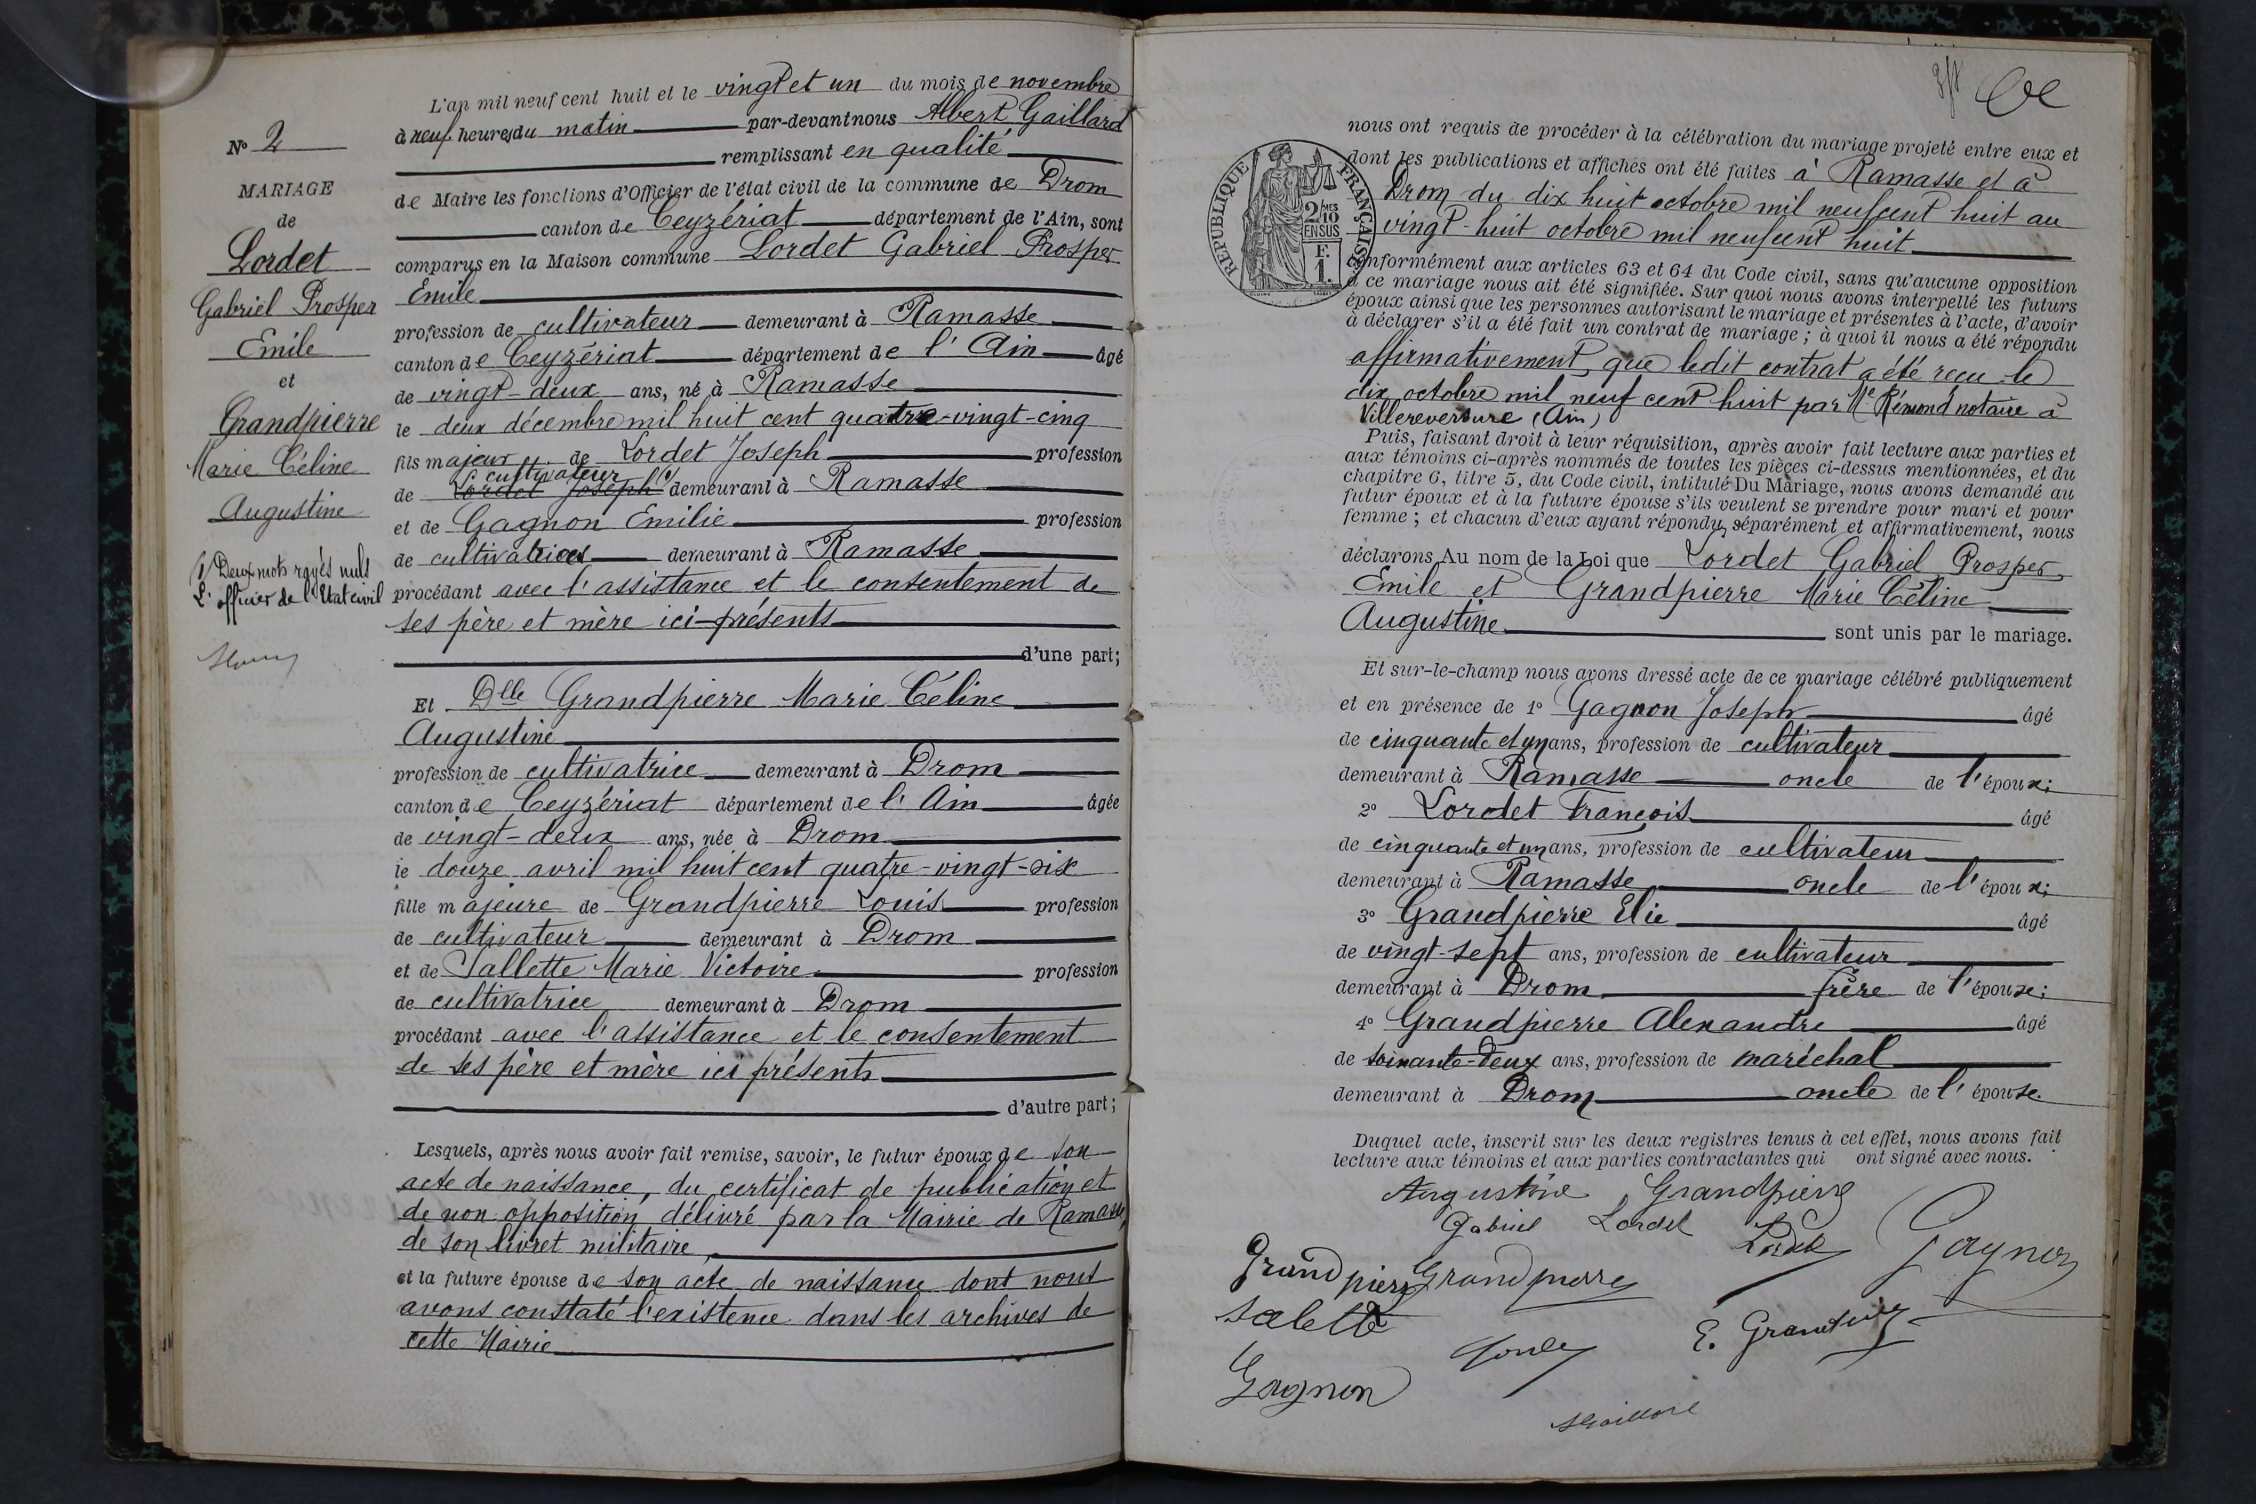 L'an mil neuf cent huit et le vingt et un du mois de novembre
à neuf heures du matin par-devant nous Albert Gaillard
remplissant en qualité
de Maire les fonctions d'Officier de l'état civil de la commune de Drom
canton de Ceyzériat département de l'Ain, sont
comparus en la Maison commune Lordet Gabriel Prosper
Emile
profession de cultivateur demeurant à Ramasse
canton de Ceyzériat département de l'Ain âgé
de vingt-deux ans, né à Ramasse
le deux décembre mil huit cent quatre-vingt-cinq
fils majeur de Lordet Joseph profession
cultivateur
de Lordet Joseph (1) demeurant à Ramasse
et de Gagnon Emilie profession
de cultivatrice demeurant à Ramasse
procédant avec l'assistance et le consentement de
ses père et mère ici présents
d'une part;
Et Dlle Grandpierre Marie Céline
Augustine
profession de cultivatrice demeurant à Drom
canton de Ceyzériat département de l'Ain âgée
de vingt-deux ans, née à Drom
le douze avril mil huit cent quatre-vingt-six
fille majeure de Grandpierre Louis profession
de cultivateur demeurant à Drom
et de Sallette Marie Victoire profession
de cultivatrice demeurant à Drom
procédant avec l'assistance et le consentement
de ses père et mère ici présents
d'autre part;
Lesquels, après nous avoir fait remise, savoir, le futur époux de son
acte de naissance, du certificat de publication et
de non opposition délivré par la Mairie de Ramasse,
de son livret militaire,
et la future épouse de son acte de naissance dont nous
avons constaté l'existence dans les archives de
cette Mairie
No 2
MARIAGE
de
Lordet
Gabriel Prosper
Emile
et
Grandpierre
Marie Céline
Augustine
(1) Deux mots rayés nuls
L'officier de l'Etat civil
nous ont requis de procéder à la célébration du mariage projeté entre eux et
dont les publications et affiches ont été faites à Ramasse et à
Drom du dix huit octobre mil neuf cent huit au
vingt-huit octobre mil neuf cent huit
conformément aux articles 63 et 64 du Code civil, sans qu'aucune opposition
à ce mariage nous ait été signifiée. Sur quoi nous avons interpellé les futurs
époux ainsi que les personnes autorisant le mariage et présentes à l'acte, d'avoir
à déclarer s'il a été fait un contrat de mariage; à quoi il nous a été répondu
affirmativement, que ledit contrat a été reçu le
dix octobre mil neuf cent huit par Me Rémond notaire à
Villereversure (Ain)
Puis, faisant droit à leur réquisition, après avoir fait lecture aux parties et
aux témoins ci-après nommés de toutes les pièces ci-dessus mentionnées, et du
chapitre 6, titre 5, du Code civil, intitulé Du Mariage, nous avons demandé au
futur époux et à la future épouse s'ils veulent se prendre pour mari et pour
femme; et chacun d'eux ayant répondu, séparément et affirmativement, nous
déclarons Au nom de la Loi que Lordet Gabriel Prosper
Emile et Grandpierre Marie Céline
Augustine sont unis par le mariage.
Et sur-le-champ nous avons dressé acte de ce mariage célébré publiquement
et en présence de 1o Gagnon Joseph âgé
de cinquante et un ans, profession de cultivateur
demeurant à Ramasse oncle de l'époux;
2o Lordet François âgé
de cinquante et un ans, profession de cultivateur
demeurant à Ramasse oncle de l'époux;
3o Grandpierre Elie âgé
de vingt-sept ans, profession de cultivateur
demeurant à Drom frère de l'épouse;
4o Grandpierre Alexandre âgé
de soixante-deux ans, profession de maréchal
demeurant à Drom oncle de l'épouse.
Duquel acte, inscrit sur les deux registres tenus à cet effet, nous avons fait
lecture aux témoins et aux parties contractantes qui ont signé avec nous.
Augustine Grandpierre
Gabriel Lordet Lordet Gagnon
Grandpierre Grandpierre
Salette
E. Grandpierre
Gagnon
AGaillard
REPUBLIQUE FRANÇAISE
2/10 MES
EN SUS
F.
1.